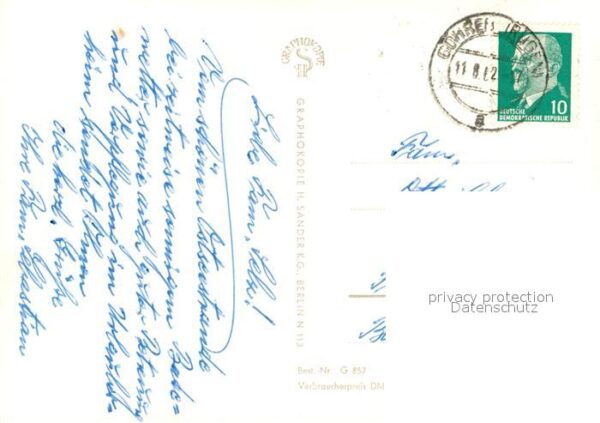 Liebe Fam. 
Vom schönen Ostseestrande
bei zeitweise sonnigem Bade=
wetter sowie auch guter Betreuung
und Verpflegung im Urlauber=
heim sendet Ihnen
die herzl. Grüße
Ihre Fam. Sebastian
GRAPHOKOPIE
GRAPHOKOPIE H. SANDER K.G., BERLIN N 113
Best.-Nr. G 857
Verbraucherpreis DM
GÖHREN (RÜGEN)
11.8.62
a
10
DEUTSCHE
DEMOKRATISCHE REPUBLIK
Fam.
privacy protection
Datenschutz